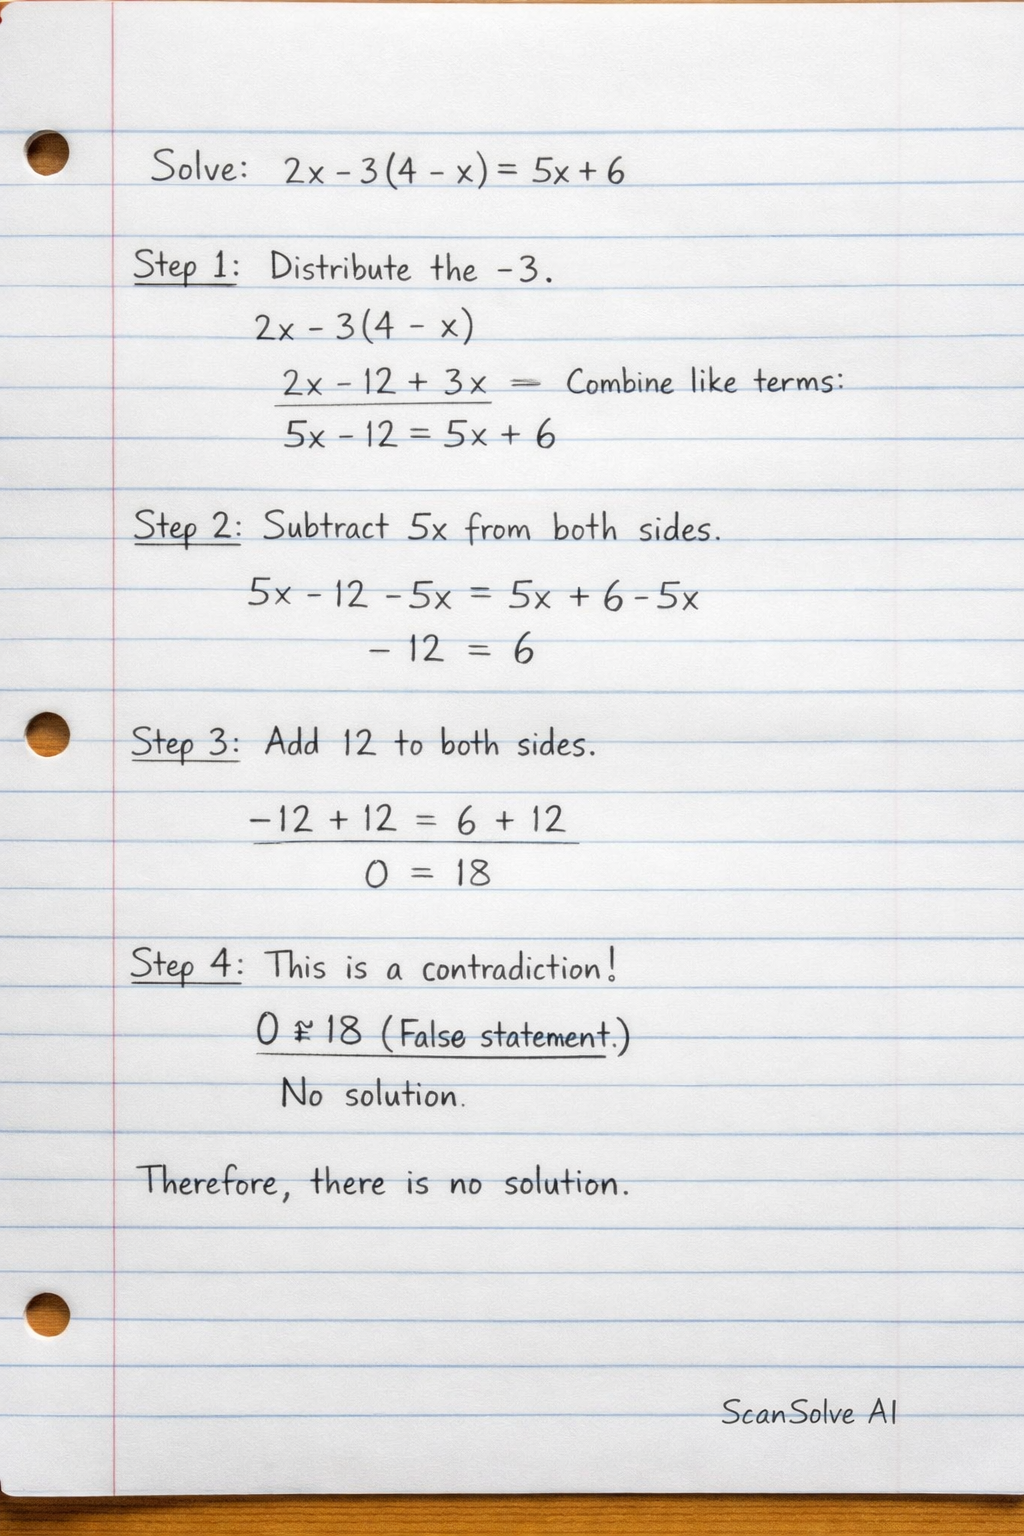 Solve: 2x - 3(4 - x) = 5x + 6
Step 1: Distribute the -3.
2x - 3(4 - x)
2x - 12 + 3x = Combine like terms:
5x - 12 = 5x + 6
Step 2: Subtract 5x from both sides.
5x - 12 - 5x = 5x + 6 - 5x
- 12 = 6
Step 3: Add 12 to both sides.
-12 + 12 = 6 + 12
0 = 18
Step 4: This is a contradiction!
0 ≠ 18 (False statement.)
No solution.
Therefore, there is no solution.
ScanSolve AI